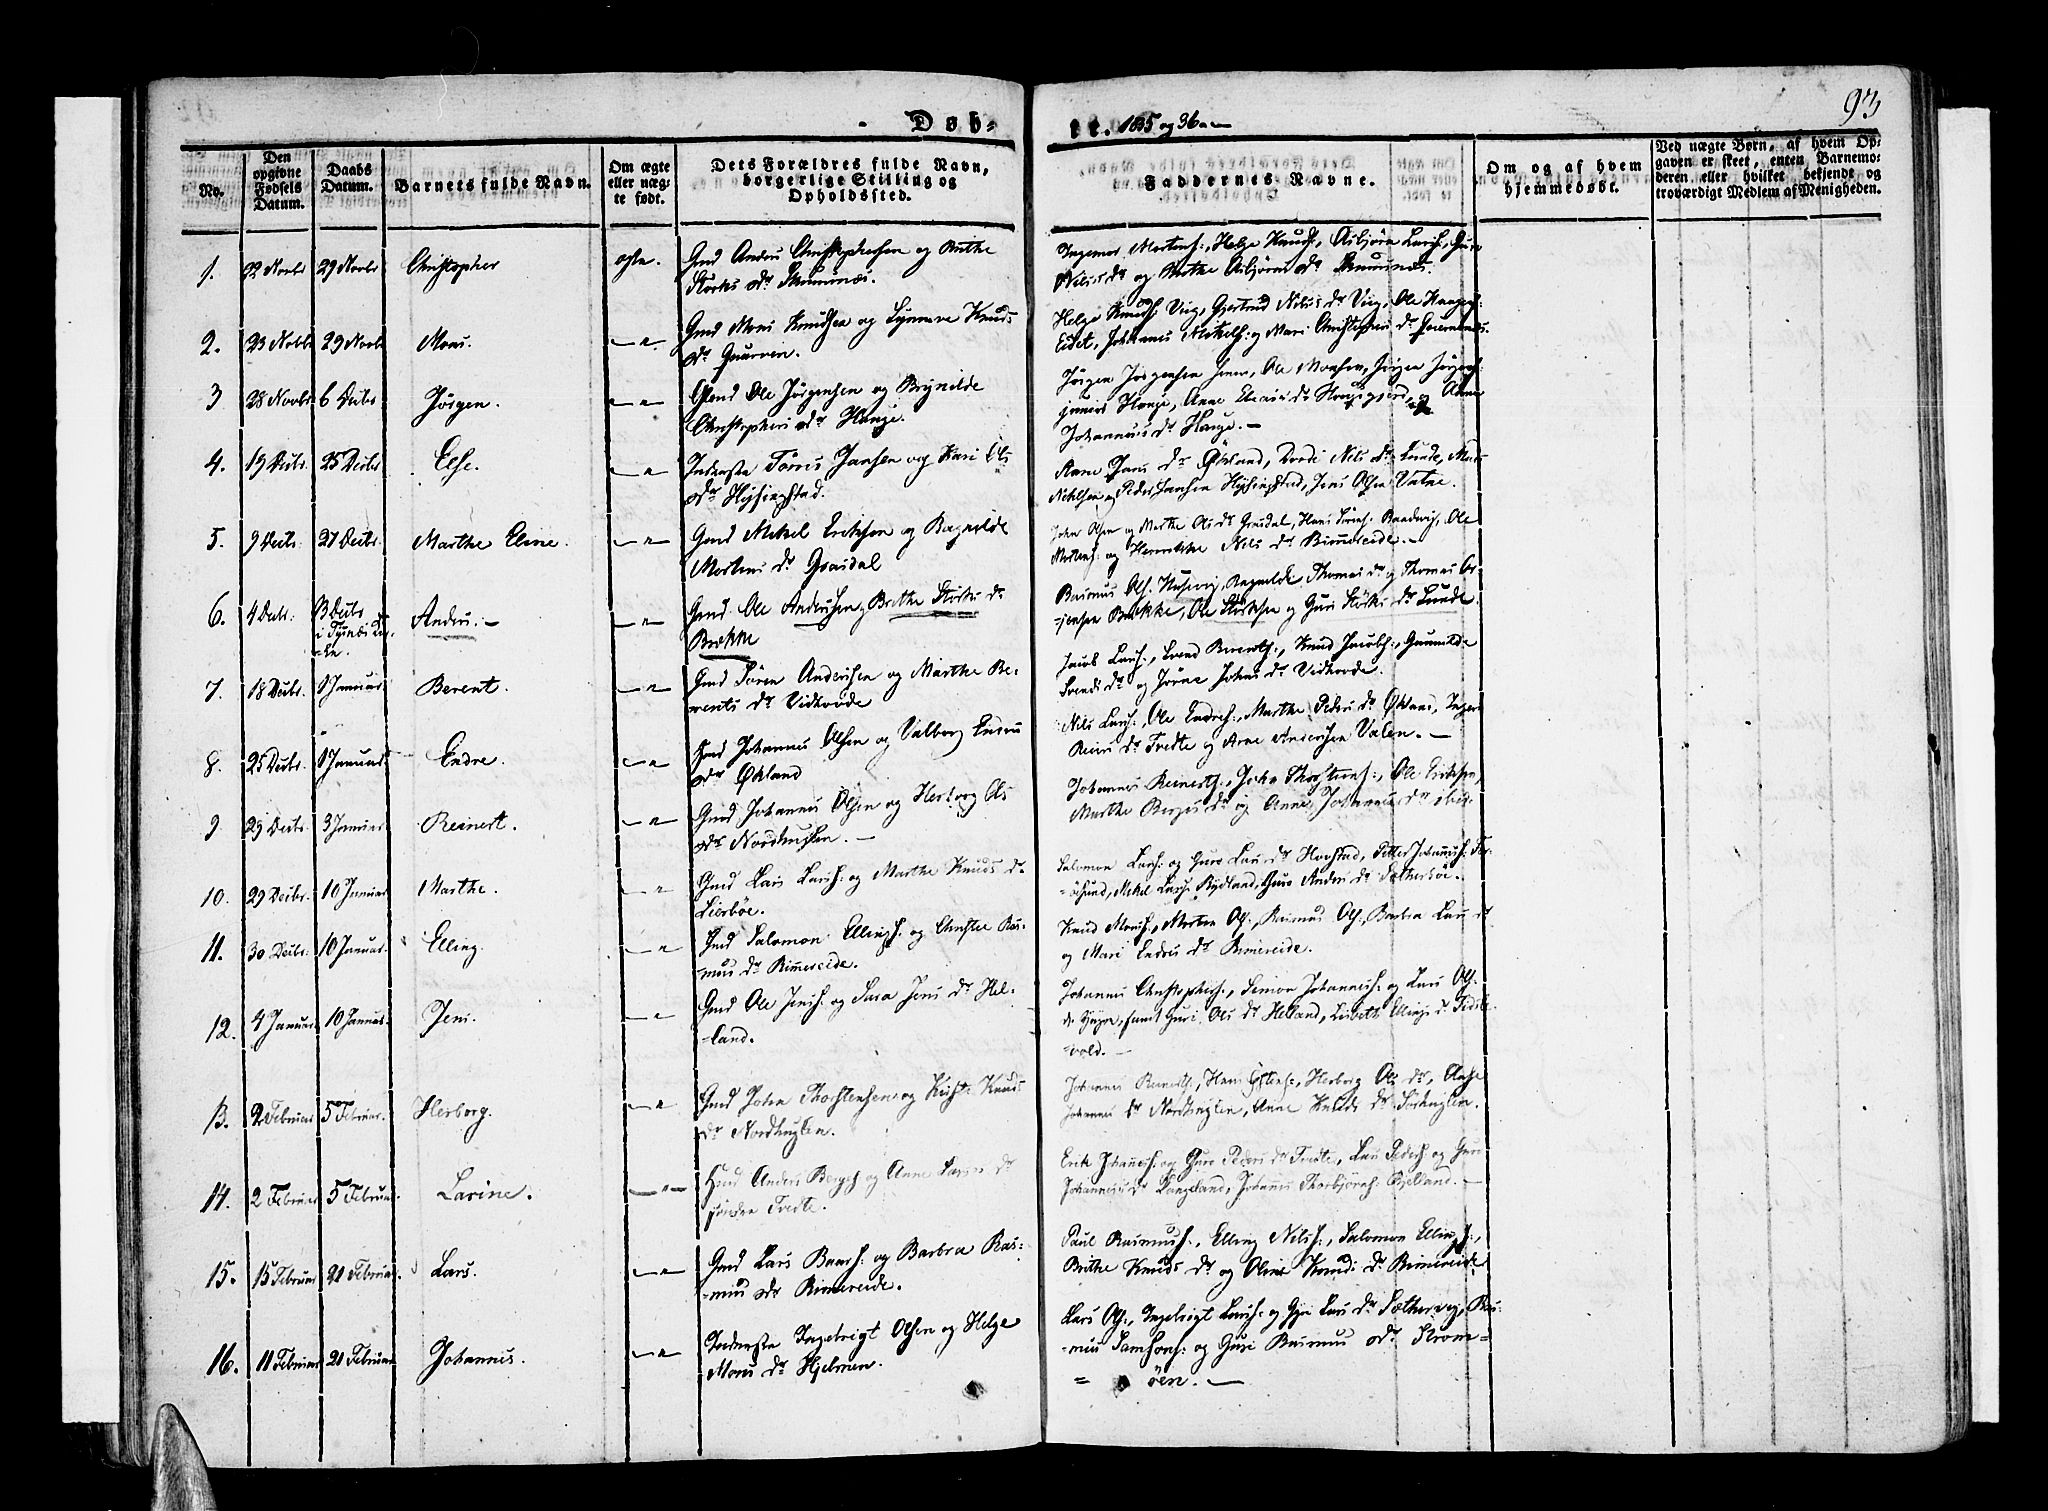 93
Døb- te. 1835 og 36
No.
Den opgivne Fødsels Datum.
Daabs Datum.
Barnets fulde Navn.
Om ægte eller uægte født.
Dets Forældres fulde Navn, borgerlige Stilling og Opholdssted.
Faddernes Navne.
Om og af hvem hjemmedøbt.
Ved uægte Børn, af hvem Opgaven er skeet, enten Barnemoderen eller hvilket bekjendt og troværdigt Medlem af Menigheden.
1. 22 Novbr 29 Novbr Christopher ægte. Gmd Anders Christophersen og Brithe
Storks dr
Ingemar Mortens:, Helge Knuds:, Asbjörn Lars:, Guro
Nils dr og Brithe Asbjörns dr
2. 23 Novbr 29 Novbr Mons. Gmd Mons Knudsen og Synneve Knuds
dr
Helge Knuds: Viig, Gjertrud Nils dr Viig, Ole Haagens:
Eidet, Johannes Mikels: og Mari Christophers dr
3 28 Novbr 6 Decbr Jörgen. Gmd Ole Jörgensen og Brynilde
Christophers dr Hauge.
Jörgen Jörgensen senior, Ole Monsen, Jörgen Jörgens:
junior Hauge, Anne dr og Anne
Johannes dr Hauge.
4. 19 Decbr. 25 Decbr Else. Inderste Törris Jansen og Kari Ols
dr Höisingstad.
Aane Jans dr Økland, Nils dr Lunde, Mons
Nehlsen og Peder Jansen Höisingstad, Jens Olsen Vatne.
5. 9 Decbr. 27 Decbr. Marthe Eline. Gmd Mikel Eriksen og Ragnilde
Mortens dr Gaasdal
John Olsen og Marthe Ols dr Gaasdal, Hans Sörens: Baadsvig, Ole
Mortens: og Henrikke Nils dr Rimmereide.
6. 4 Decbr. 13 Decbr
i Tysnes Kir-
ke. Anders. Gmd Ole Andersen, Brithe Störks dr
Brekke
Rasmus Ols: Husevig, Ragnilde Thomas dr og Thomas Ør-
jensen Brekke, Ole Störksen og Guri Störks dr Lunde.
7. 18 Decbr. 1 Januar Berent. Gmd Sören Andersen og Marthe Be-
rents dr Vidhovde
Jacob Lars:, Svend Berents:, Knud Jacobs:, Gunnilde
Svends dr og Jörne Johans dr Vidhovde.
8. 25 Decbr. 1 Januar Endre. Hmd Johannes Olsen og Valborg Endres
dr Økland
Nils Lars:, Ole Endres:, Marthe Peders dr Økland, Inger
Reiers dr Tvedte og Arne Andersen Valen.
9. 29 Decbr. 3 Januar Reinert. Gmd Johannes Olsen og Herborg Ols
dr Nordhuglen.
Johannes Reinerts:, John Thorstens:, Ole Eriksen,
Marthe Berges dr og Anne Johannes dr ibid.
10. 29 Decbr. 10 Januar Marthe. Gmd Lars Lars: og Marthe Knuds dr
Lierböe.
Salomon Lars: og Guro Lars dr Hovstad, Petter Johannes:
Mikel Lars: Rydland, Guro Anders dr Sætherböe.
11. 30 Decbr. 10 Januar. Elling. Gmd Salomon Ellings: og Christie Ras-
mus dr Rimereide.
Knud Mons:, Morten Ols:, Rasmus Ols:, Barbra Lars dr
og Mari Endres dr Rimereide.
12. 4 Januar 10 Januar. Jens. Gmd Ole Jens: og Sara Jens dr Hel-
land.
Johannes Christophers:, Simon Johannes: og Lars Ols:
samt Guri Ols dr Helland, Lisbeth Ellings dr Tveds-
vold.
13. 2 Februar 5 Februar. Herborg. Gmd John Thorstensen og Kristi Knuds
dr Nordhuglen.
Johannes Reinerts:, Hans Østens:, Herborg Ols dr, Aase
Johannes dr Nordhuglen, Anne Knuds dr Sörhuglen.
14. 2 Februar 5 Februar. Larine. Hmd Anders Berges: og Anne Lars dr
söndre Tvedte.
Erik Johannes: og Guro Peders dr Tvedte, Lars Peders: og Guri
Johannes dr Langeland, Johannes Thorbjörns: Gjelland.
15. 15 Februar 21 Februar. Lars. Gmd Lars Baars: og Barbra Ras-
mus dr Rimereide.
Paul Rasmus:, Elling Nils:, Salomon Ellings:,
Brithe Knuds dr og Oline Knuds dr Rimereide.
16. 11 Februar 21 Februar Johannes. Inderste Ingebrigt Olsen og Helge
Mons dr Hjelmen.
Lars Ols:, Ingebrigt Lars: og Gjöri Lars dr Sæthervig, Ras-
mus Samsons: og Guri Rasmus dr Ström-
öen.